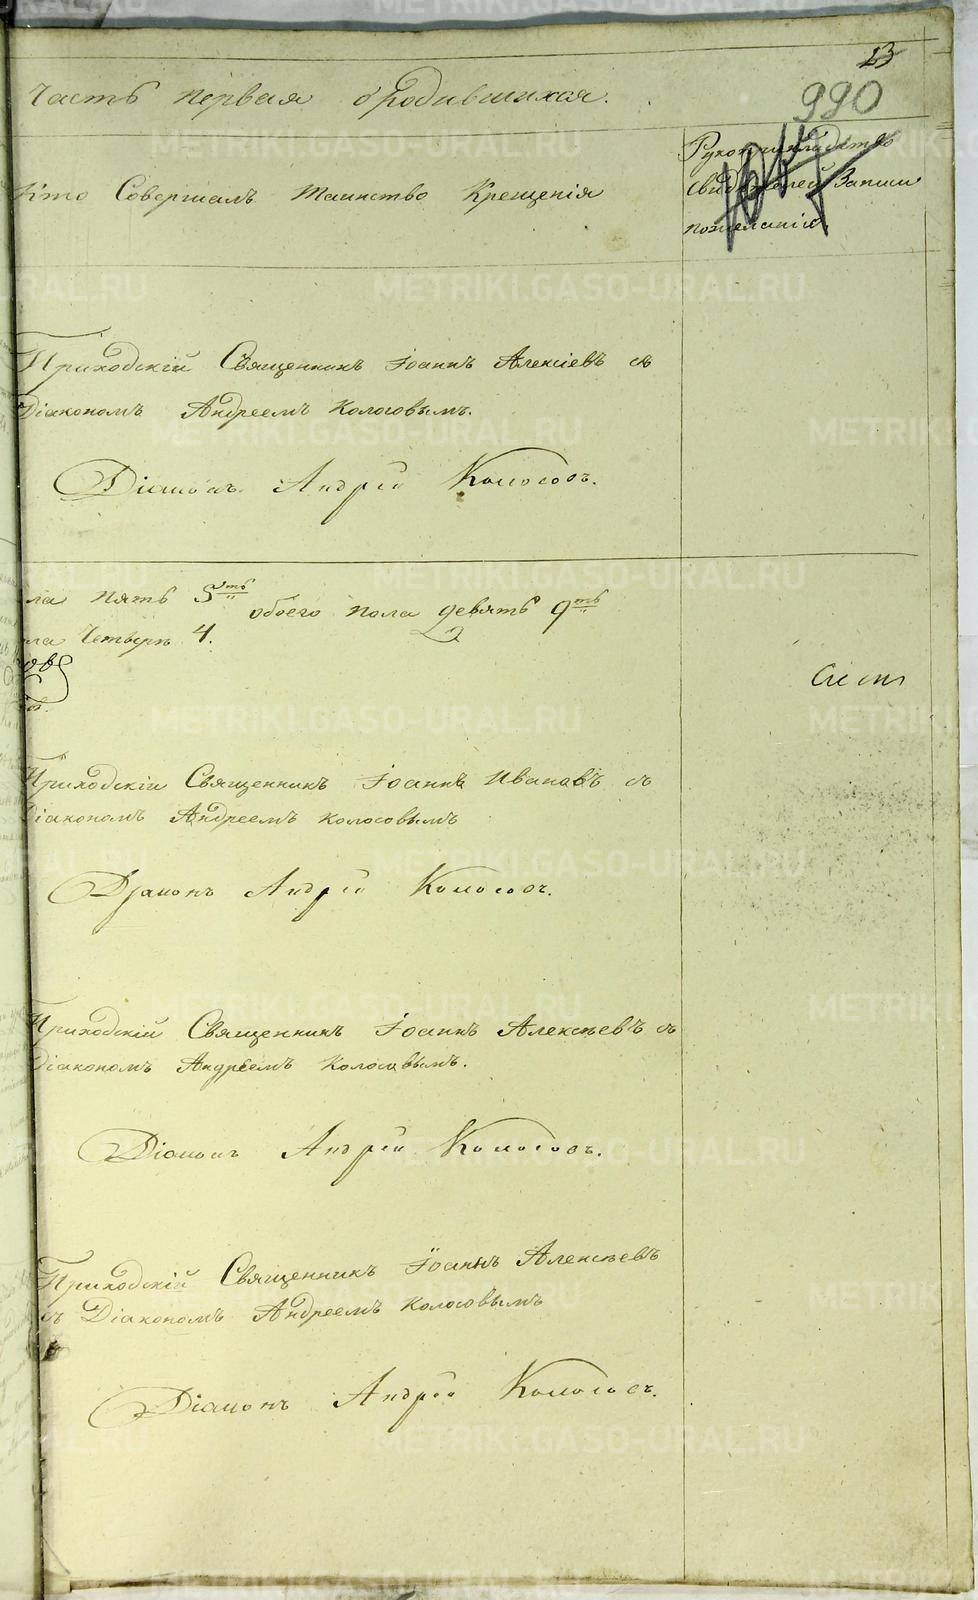 23
990
Часть первая о родившихся.
Кто Совершалъ Таинство Крещенія
Рукоприкладство
свидѣтелей Записи
пожеланію
Приходскій Священникъ Іоаннъ Алексіевъ съ
Діакономъ Андреемъ Колосовымъ.
Діаконъ Андрей Колосовъ.
ла пять 5ть обоего пола девять 9ть
ла Четверо 4.
Приходскій Священникъ Іоаннъ Ивановъ съ
Діакономъ Андреемъ Колосовымъ
Діаконъ Андрей Колосовъ.
Приходскій Священникъ Іоаннъ Алексѣевъ съ
Діакономъ Андреемъ Колосовымъ.
Діаконъ Андрей Колосовъ.
Приходскій Священникъ Іоаннъ Алексѣевъ
съ Діакономъ Андреемъ Колосовымъ
Діаконъ Андрей Колосовъ.
METRIKI.GASO-URAL.RU